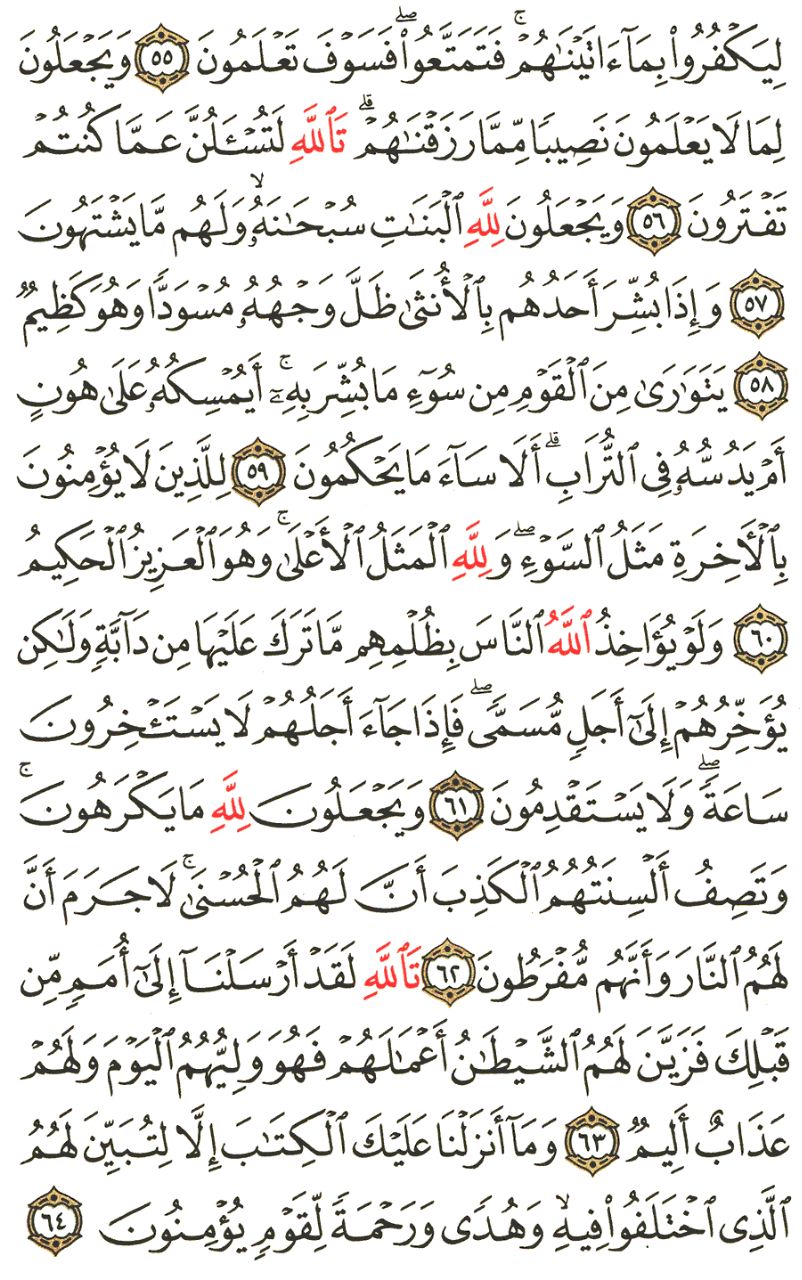 لِيَكۡفُرُواْ بِمَآ ءَاتَيۡنَٰهُمۡۚ فَتَمَتَّعُواْۖ فَسَوۡفَ تَعۡلَمُونَ ٥٥ وَيَجۡعَلُونَ
لِمَا لَا يَعۡلَمُونَ نَصِيبٗا مِّمَّا رَزَقۡنَٰهُمۡۗ تَٱللَّهِ لَتُسۡـَٔلُنَّ عَمَّا كُنتُمۡ
تَفۡتَرُونَ ٥٦ وَيَجۡعَلُونَ لِلَّهِ ٱلۡبَنَٰتِ سُبۡحَٰنَهُۥۙ وَلَهُم مَّا يَشۡتَهُونَ
٥٧ وَإِذَا بُشِّرَ أَحَدُهُم بِٱلۡأُنثَىٰ ظَلَّ وَجۡهُهُۥ مُسۡوَدّٗا وَهُوَ كَظِيمٞ
٥٨ يَتَوَٰرَىٰ مِنَ ٱلۡقَوۡمِ مِن سُوٓءِ مَا بُشِّرَ بِهِۦٓۚ أَيُمۡسِكُهُۥ عَلَىٰ هُونٍ
أَمۡ يَدُسُّهُۥ فِي ٱلتُّرَابِۗ أَلَا سَآءَ مَا يَحۡكُمُونَ ٥٩ لِلَّذِينَ لَا يُؤۡمِنُونَ
بِٱلۡأٓخِرَةِ مَثَلُ ٱلسَّوۡءِۖ وَلِلَّهِ ٱلۡمَثَلُ ٱلۡأَعۡلَىٰۚ وَهُوَ ٱلۡعَزِيزُ ٱلۡحَكِيمُ
٦٠ وَلَوۡ يُؤَاخِذُ ٱللَّهُ ٱلنَّاسَ بِظُلۡمِهِم مَّا تَرَكَ عَلَيۡهَا مِن دَآبَّةٖ وَلَٰكِن
يُؤَخِّرُهُمۡ إِلَىٰٓ أَجَلٖ مُّسَمّٗىۖ فَإِذَا جَآءَ أَجَلُهُمۡ لَا يَسۡتَـٔۡخِرُونَ
سَاعَةٗۖ وَلَا يَسۡتَقۡدِمُونَ ٦١ وَيَجۡعَلُونَ لِلَّهِ مَا يَكۡرَهُونَۚ
وَتَصِفُ أَلۡسِنَتُهُمُ ٱلۡكَذِبَ أَنَّ لَهُمُ ٱلۡحُسۡنَىٰۚ لَا جَرَمَ أَنَّ
لَهُمُ ٱلنَّارَ وَأَنَّهُم مُّفۡرَطُونَ ٦٢ تَٱللَّهِ لَقَدۡ أَرۡسَلۡنَآ إِلَىٰٓ أُمَمٖ مِّن
قَبۡلِكَ فَزَيَّنَ لَهُمُ ٱلشَّيۡطَٰنُ أَعۡمَٰلَهُمۡ فَهُوَ وَلِيُّهُمُ ٱلۡيَوۡمَ وَلَهُمۡ
عَذَابٌ أَلِيمٞ ٦٣ وَمَآ أَنزَلۡنَا عَلَيۡكَ ٱلۡكِتَٰبَ إِلَّا لِتُبَيِّنَ لَهُمُ
ٱلَّذِي ٱخۡتَلَفُواْ فِيهِۙ وَهُدٗى وَرَحۡمَةٗ لِّقَوۡمٖ يُؤۡمِنُونَ ٦٤